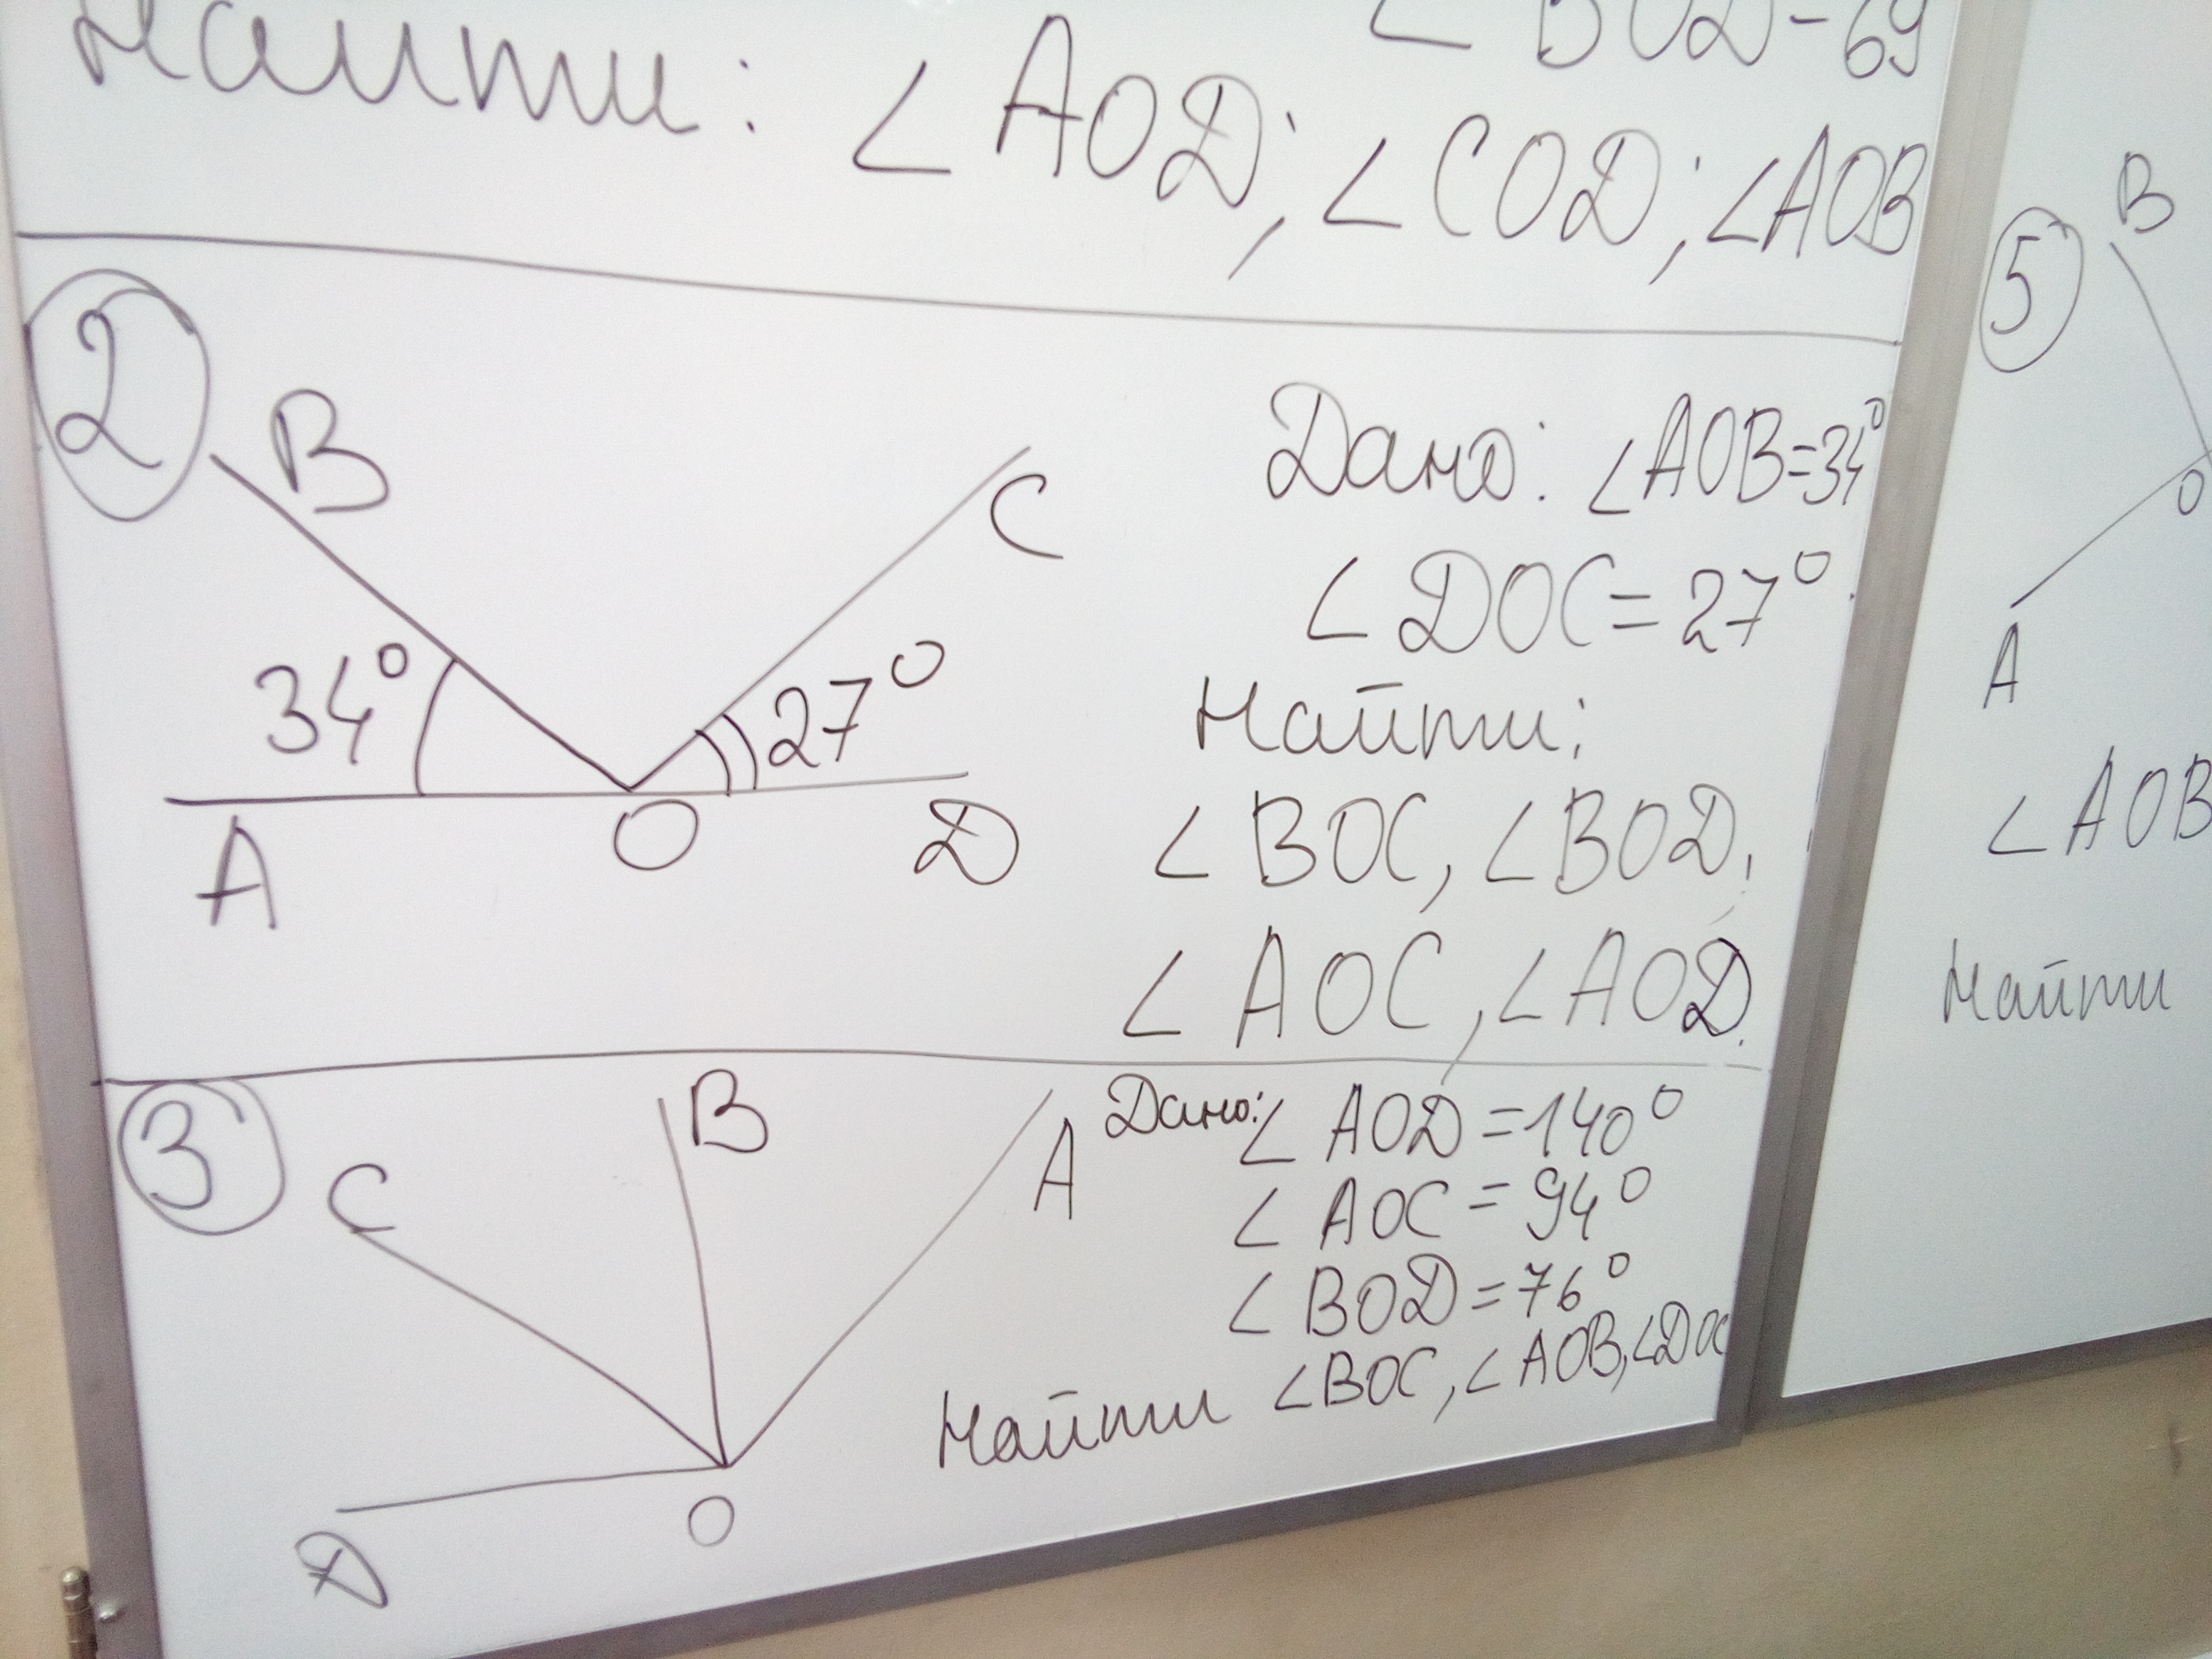 ∠ BOD = 69
Найти: ∠ AOD; ∠ COD; ∠AOB
2
B
C
34°
27°
A
O
D
Дано: ∠AOB=34°
∠ DOC = 27°
Найти:
∠ BOC, ∠BOD,
∠ AOC, ∠AOD.
3
C
B
A
D
O
Дано: ∠ AOD = 140°
∠ AOC = 94°
∠ BOD = 76°
Найти ∠BOC, ∠ AOB, ∠DOC
5
B
O
A
∠ AOB
Найти